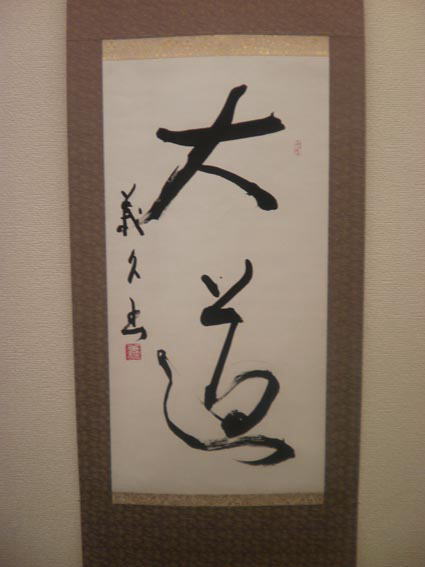 大道
義久書